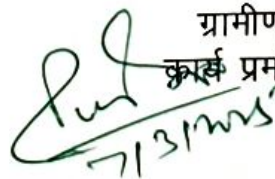 ग्रामीण
कार्य प्रम
7/3/2025